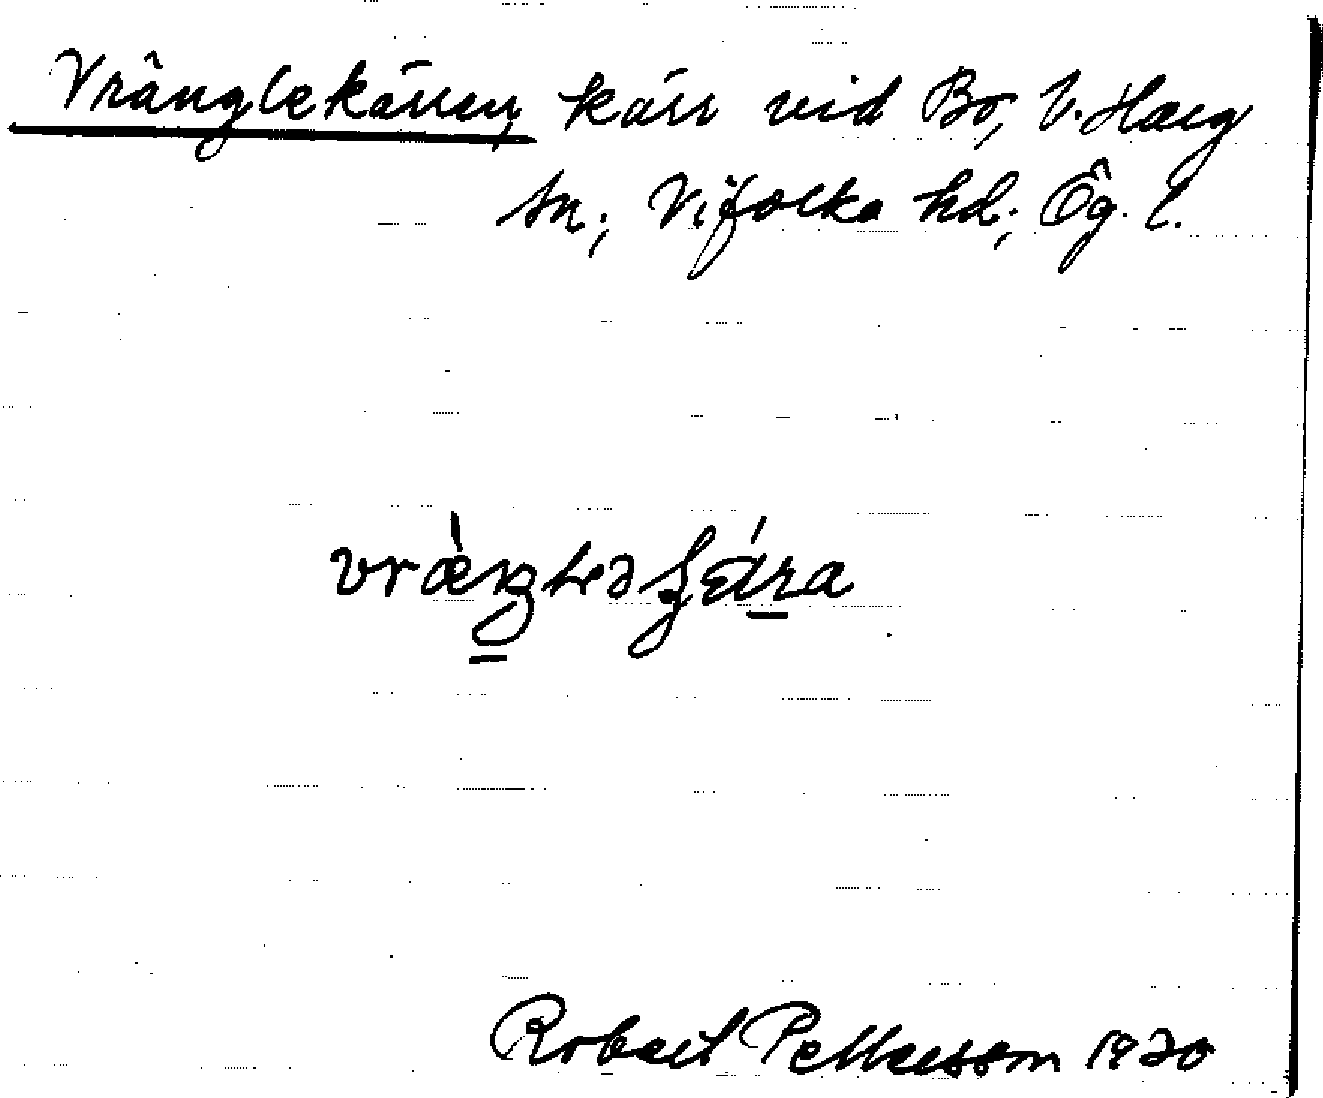 Vränglekärren, kärr vid Bo, V. Harg
sn; Vifolka hd; Ög. l.
Robert Pettersson 1920